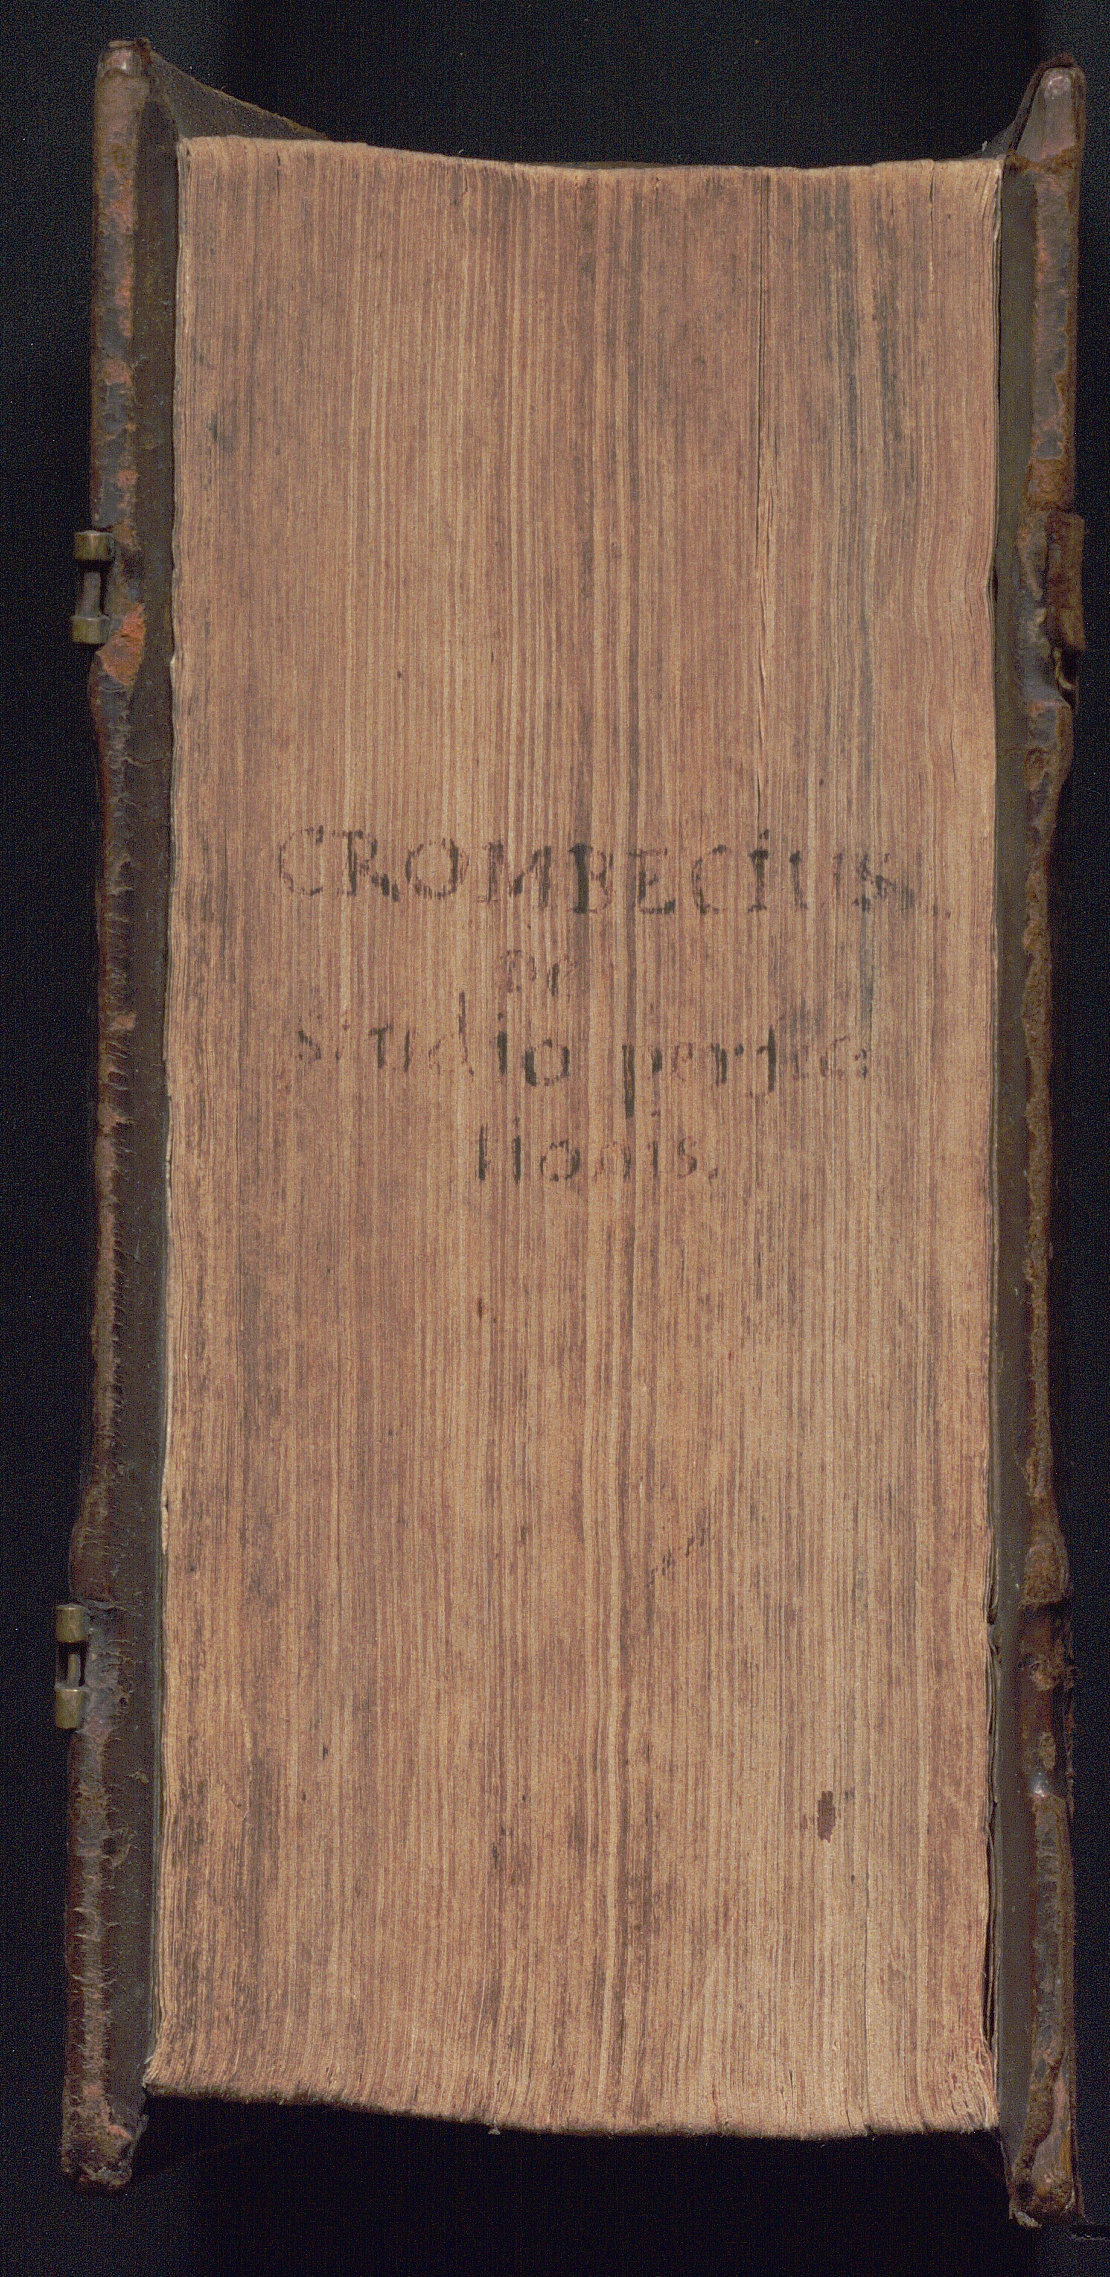 CROMBECIUS.
De
Studio perfec
tionis.